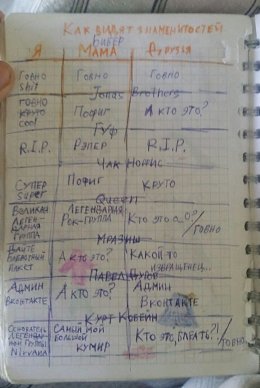 Как видят знаменитостей
Бибер
Я Мама Друзья
Говно Shit Говно Говно
Jonas Brothers
Говно круто cool Пофиг А кто это?
Гуф
R.I.P. Рэпер R.I.P.
Чак Норрис
Супер Super Пофиг Круто
Queen
Великая легендарная группа Легендарная рок-группа Кто это о_О?/говно
Мразиш
пакет А кто это? Какой-то извращенец...
Павел Дуров
Админ Вконтакте А кто это? Админ Вконтакте
Курт Кобейн
Основатель легендарной группы Nirvana Самый мой большой кумир Кто это, блеать?!/говно